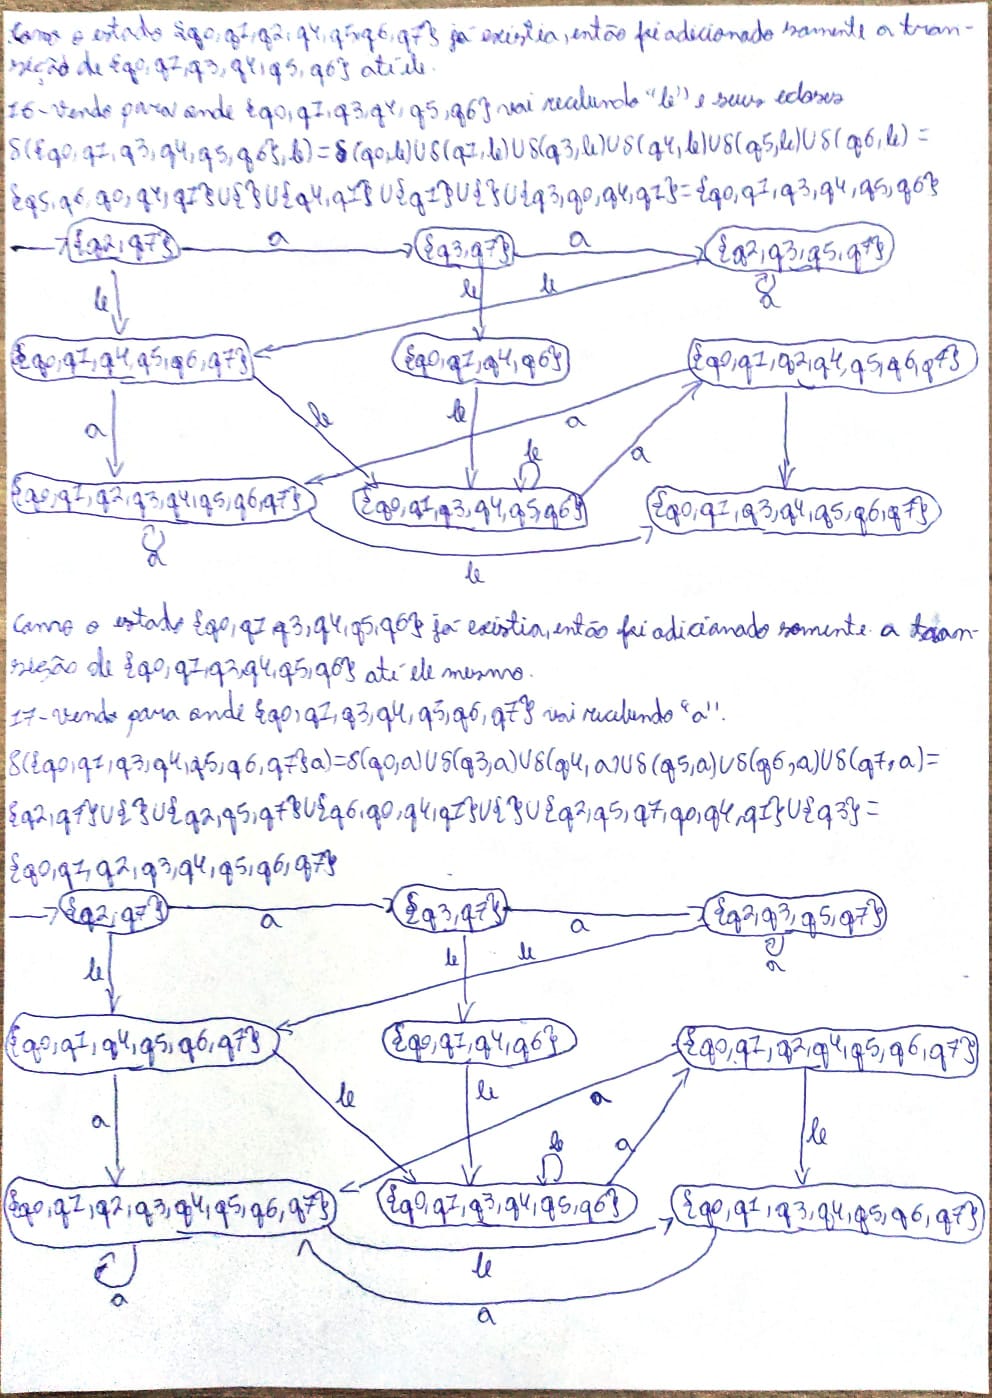 Como o estado {q0,q1,q2,q4,q5,q6,q7} já existia, então foi adicionado somente a tran-
sição de {q0,q1,q3,q4,q5,q6} até ele.
16-Vendo para onde {q0,q1,q3,q4,q5,q6} vai recebendo "b" e seus
δ({q0,q1,q3,q4,q5,q6},b)=δ(q0,b)∪δ(q1,b)∪δ(q3,b)∪δ(q4,b)∪δ(q5,b)∪δ(q6,b)=
{q5,q6,q0,q4,q1}∪{}∪{q4,q1}∪{q1}∪{}∪{q3,q0,q4,q1}={q0,q1,q3,q4,q5,q6}
{q2,q7} a {q3,q7} a {q2,q3,q5,q7}
b b b a
{q0,q1,q4,q5,q6,q7} {q0,q1,q4,q6} {q0,q1,q2,q4,q5,q6,q7}
a b b a
b a
{q0,q1,q2,q3,q4,q5,q6,q7} {q0,q1,q3,q4,q5,q6} {q0,q1,q3,q4,q5,q6,q7}
a b
Como o estado {q0,q1,q3,q4,q5,q6} já existia, então foi adicionado somente a tran-
sição de {q0,q1,q3,q4,q5,q6} até ele mesmo.
17-Vendo para onde {q0,q1,q3,q4,q5,q6,q7} vai recebendo "a".
δ({q0,q1,q3,q4,q5,q6,q7}a)=δ(q0,a)∪δ(q3,a)∪δ(q4,a)∪δ(q5,a)∪δ(q6,a)∪δ(q7,a)=
{q2,q7}∪{}∪{q2,q5,q7}∪{q6,q0,q4,q1}∪{}∪{q2,q5,q7,q0,q4,q1}∪{q3}=
{q0,q1,q2,q3,q4,q5,q6,q7}
{q2,q7} a {q3,q7} a {q2,q3,q5,q7}
b b b a
{q0,q1,q4,q5,q6,q7} {q0,q1,q4,q6} {q0,q1,q2,q4,q5,q6,q7}
a b b a b
b a
{q0,q1,q2,q3,q4,q5,q6,q7} {q0,q1,q3,q4,q5,q6} {q0,q1,q3,q4,q5,q6,q7}
a b
a